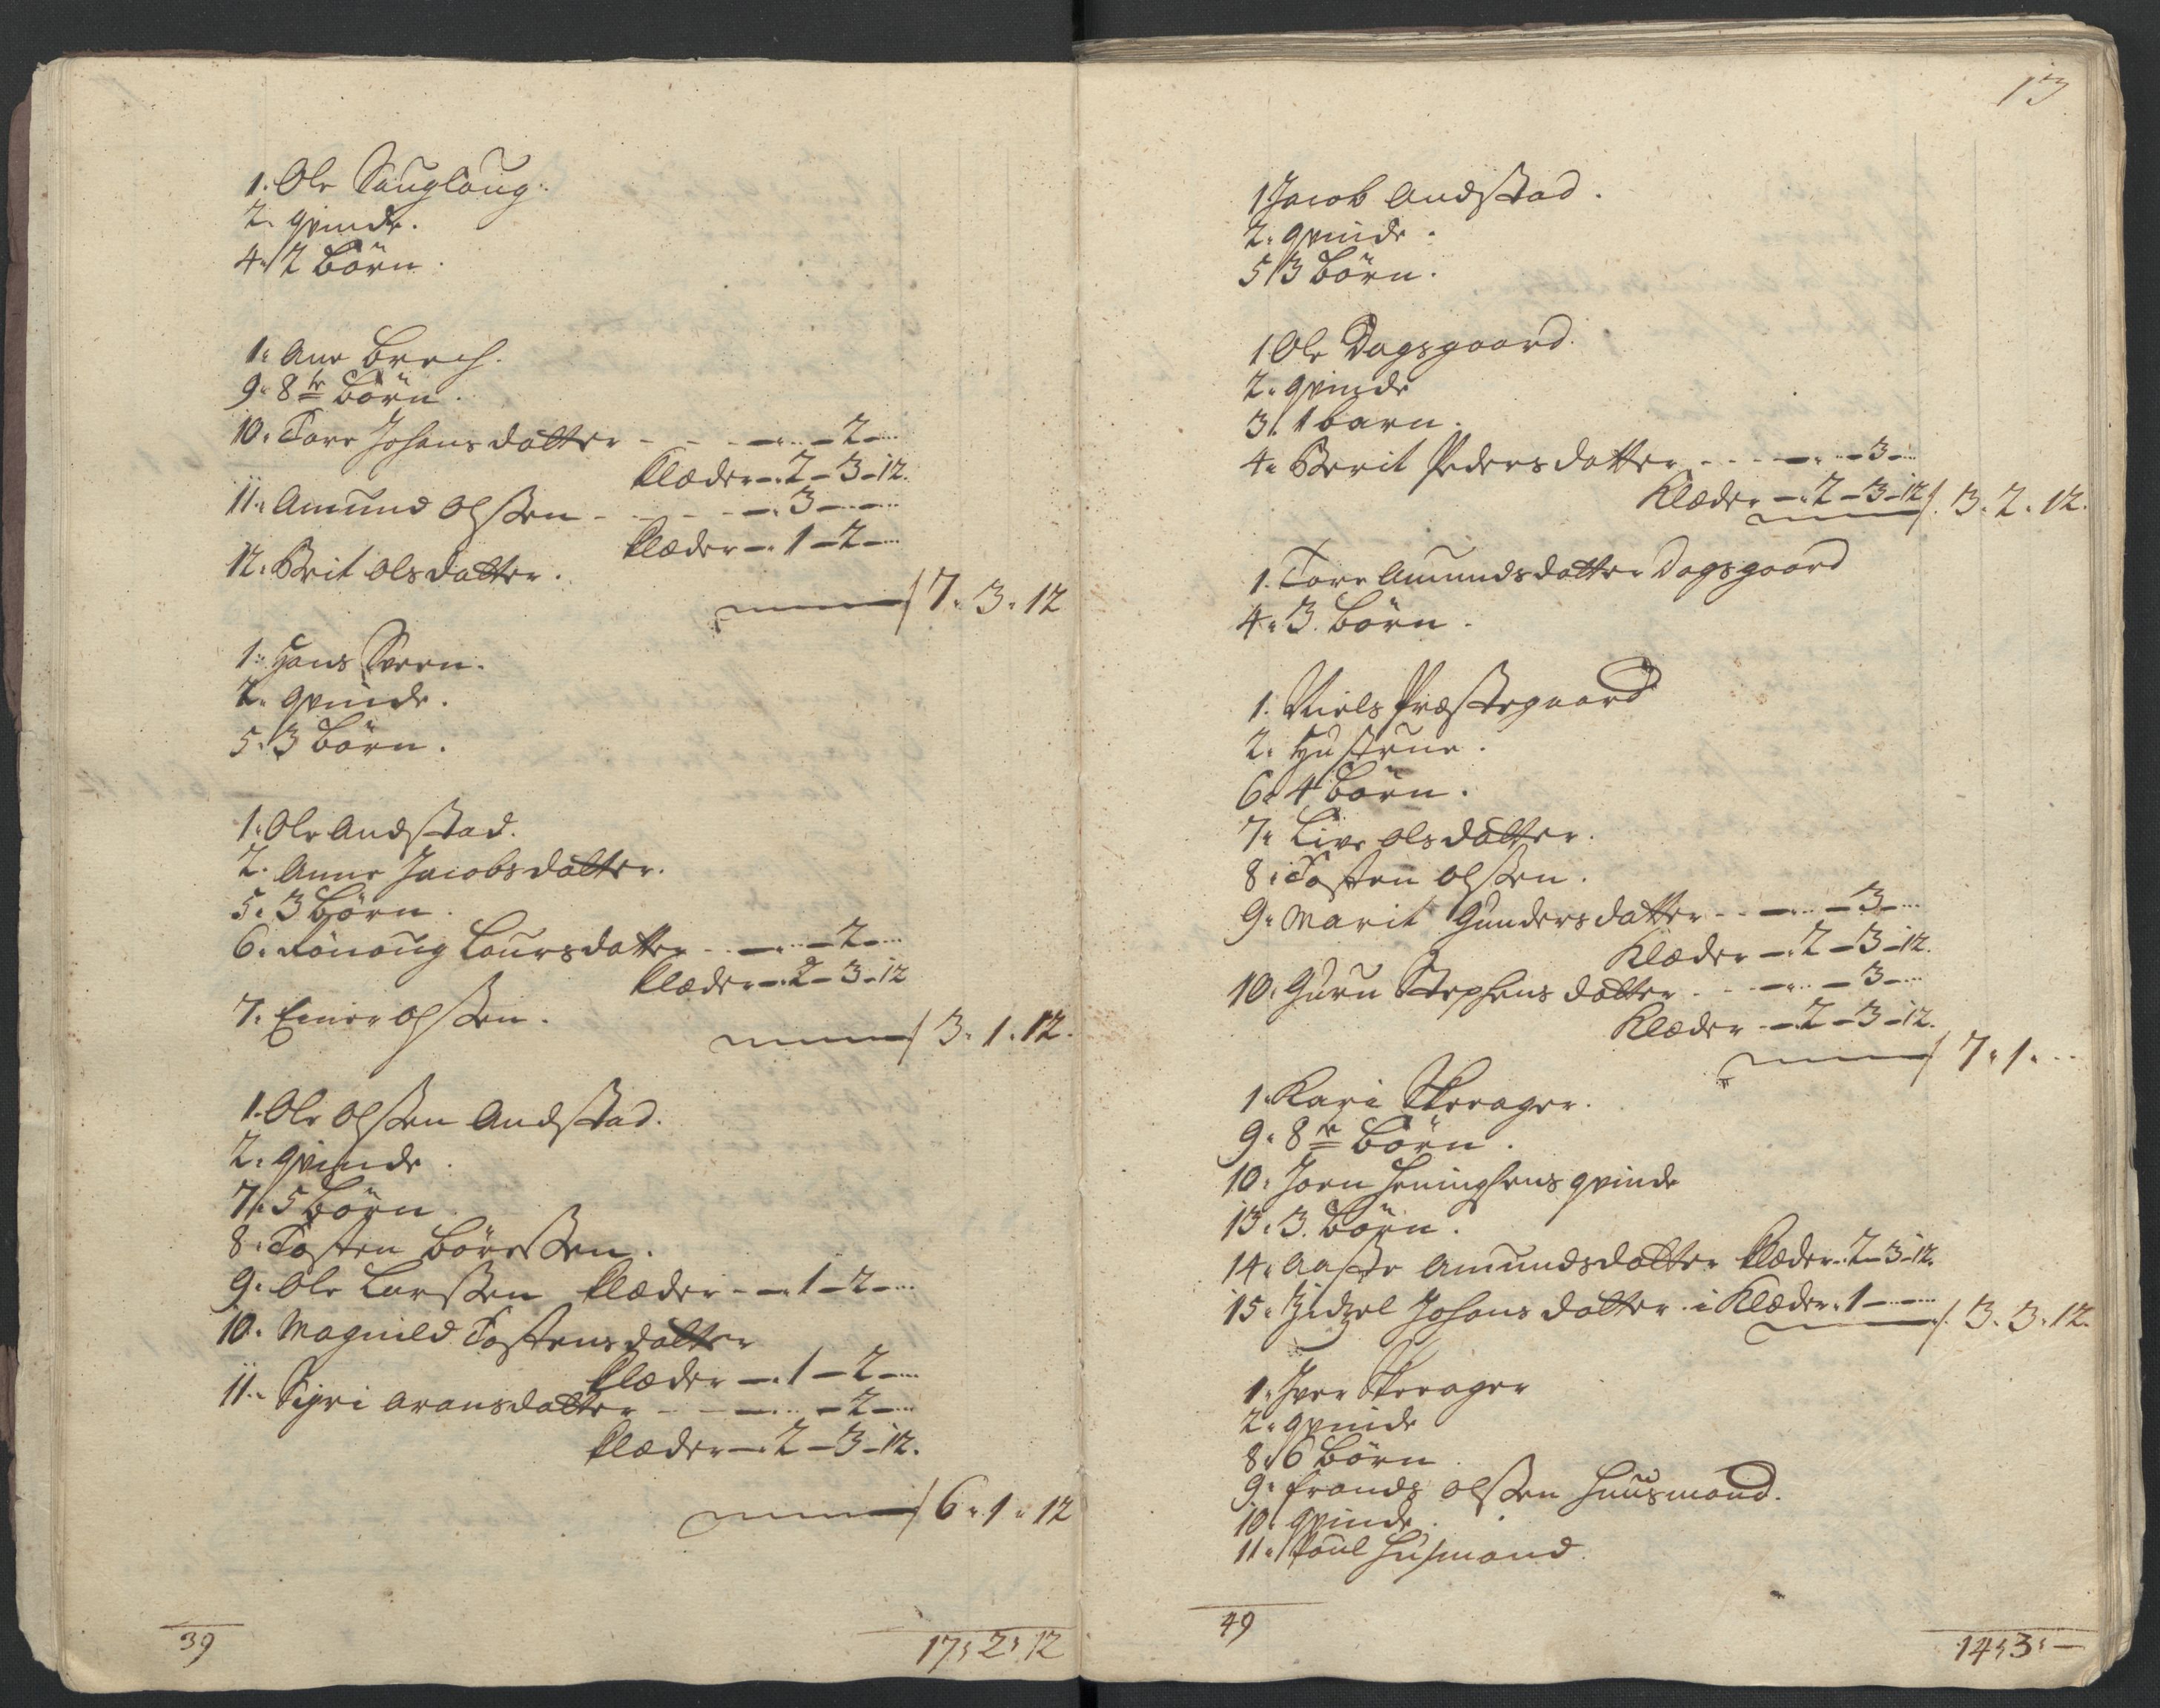 1. Ole Sauglaug.
2. qvinde.
4. 2 Börn.
1. Ane Brech.
9. 8te Börn.
10. Tore Johansdatter - - - 2 -
Klæder - 2 - 3 - 12.
11. Amund Olssen - - - 3 -
Klæder - 1 - 2 -
12. Brit Olsdatter.
7. 3. 12
1. Hans Sveen.
2. qvinde.
5. 3 Börn.
1. Ole Andstad.
2. Anne Jacobsdatter.
5. 3 Börn.
6. Rönoug Laursdatter - - - 2 -
Klæder - 2 - 3 - 12
7. Einer Olssen.
3. 1. 12.
1. Ole Olssen Andstad.
2. qvinde.
7. 5 Börn.
8. Tosten Börressen.
9. Ole Larssen Klæder - 1 - 2 -
10. Magnild Tostensdatter
Klæder - 1 - 2 -
11. Sijri Aransdatter - - - 2 -
Klæder - 2 - 3 - 12.
6. 1. 12
39
17. 2. 12
13
1 Jacob Andstad.
2. qvinde.
5. 3 Börn.
1 Ole Dagsgaard.
2. qvinde
3. 1 barn.
4. Berit Pedersdatter - - - 3 -
Klæder - 2 - 3 - 12
3. 2. 12.
1. Tore Amundsdatter Dagsgaard
4. 3. Börn.
1. Niels Præstegaard
2. Hustrue.
6. 4 Börn.
7. Live Olsdatter.
8. Tosten Olssen.
9. Marit Gundersdatter - - - 3 -
Klæder - 2 - 3 - 12.
10. Guru Stephensdatter - - - 3 -
Klæder - 2 - 3 - 12.
7. 1. -
1. Kari Skrager.
9. 8te Börn.
10. Joen Heninghens qvinde
13. 3. Börn.
14. Aaste Amundsdatter Klæder. 2 - 3 - 12.
15. Zidzel Johansdatter i Klæder. 1 - -
3. 3. 12.
1. Iver Skrager
2. qvinde
8. 6 Börn.
9. Frands Olssen Huusmand.
10. qvinde.
11. Poul Husmand.
49
14. 3. -